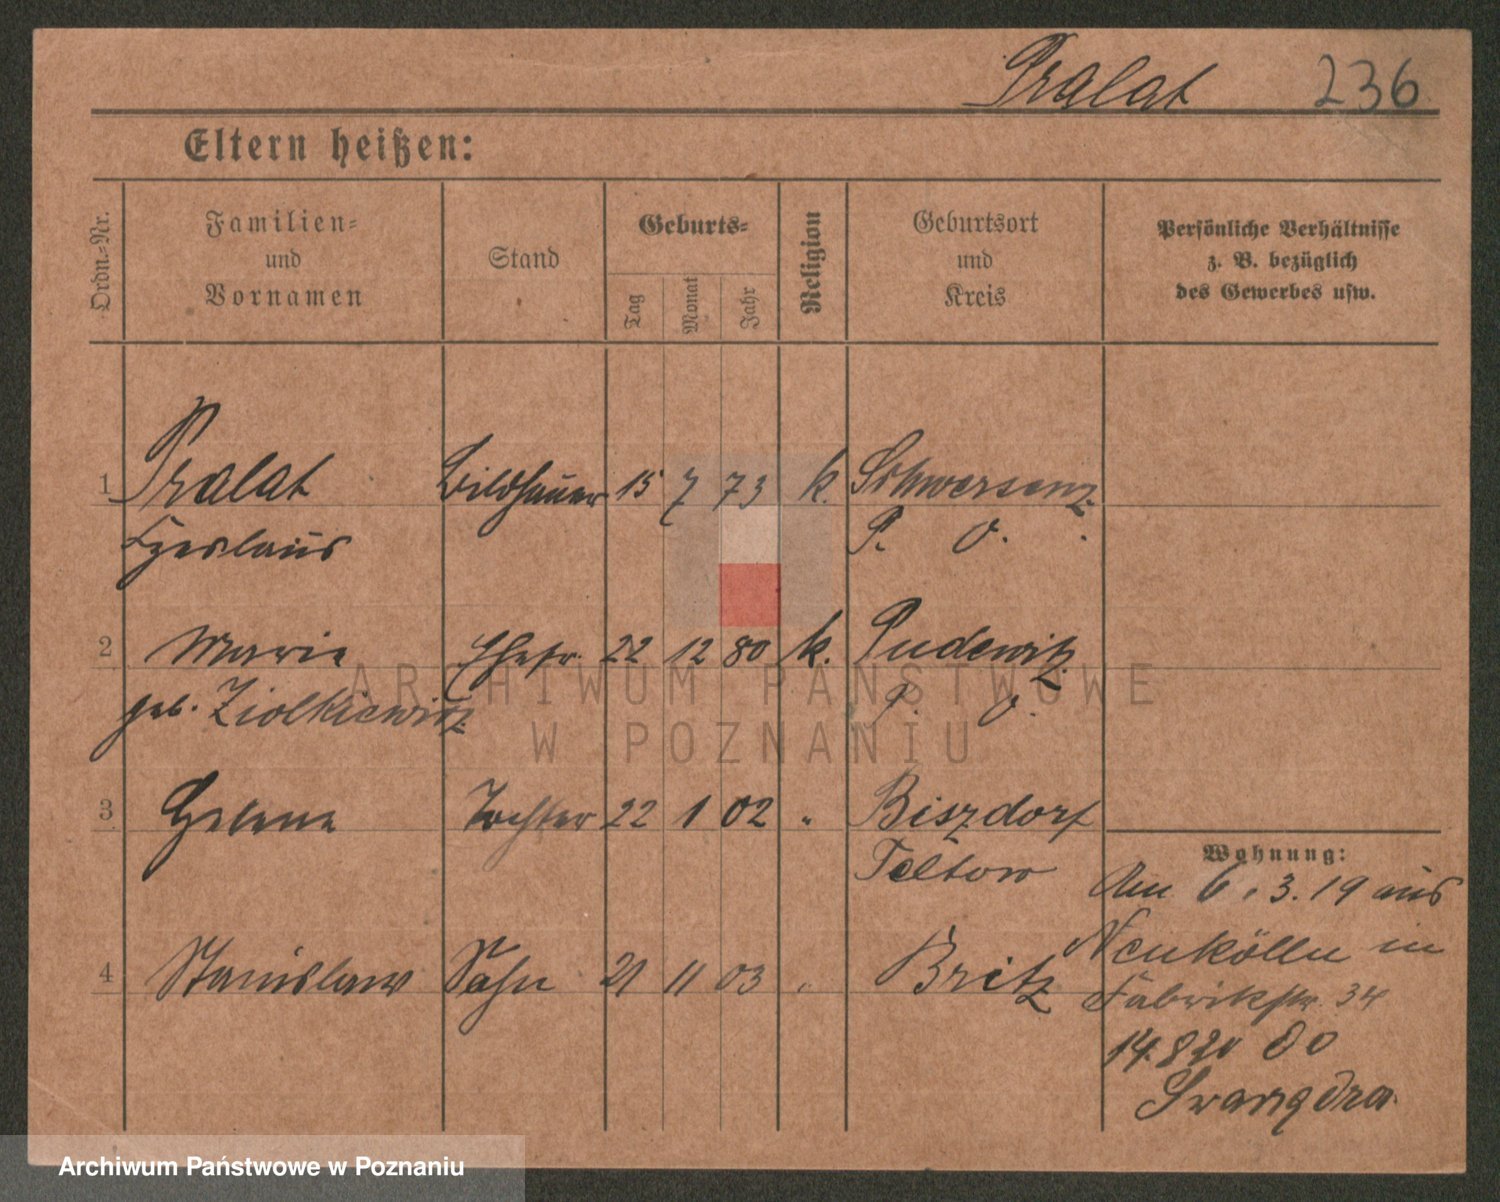 Pralat 236
Eltern heißen:
Ordn.-Nr.
Familien-
und
Vornamen
Stand
Geburts-
Tag
Monat
Jahr
Religion
Geburtsort
und
Kreis
Persönliche Verhältnisse
z. B. bezüglich
des Gewerbes usw.
1 Pralat Bildhauer 15 7 73 k. Schwersenz
Czeslaus P. O.
2 Marie Ehefr. 22 12 80 k. Pudewitz
geb. Ziolkiewicz P. O.
3 Helene Tochter 22 1 02 " Biszdorf
Teltow
4 Stanislaw Sohn 21 11 03 " Britz
Wohnung:
Am 6.3.19 aus
Neukölln in
Fabrikstr. 34
14.8.20
ARCHIWUM PAŃSTWOWE
W POZNANIU
Archiwum Państwowe w Poznaniu